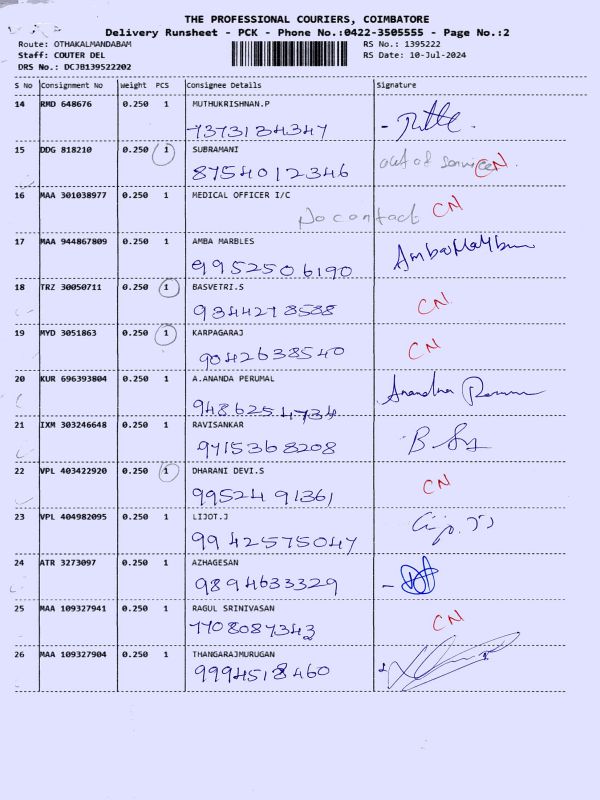 THE PROFESSIONAL COURIERS, COIMBATORE
Delivery Runsheet - PCK - Phone No.:0422-3505555 - Page No.:2
Route: OTHAKALMANDABAM
RS No.: 1395222
Staff: COUTER DEL
RS Date: 10-Jul-2024
DRS No.: DCJB139522202
S No Consignment No Weight PCS Consignee Details Signature
14 RMD 648676 0.250 1 MUTHUKRISHNAN.P
7373134347
15 DDG 818210 0.250 1 SUBRAMANI
out of service CN
8754012346
16 MAA 301038977 0.250 1 MEDICAL OFFICER I/C
No contact CN
17 MAA 944867809 0.250 1 AMBA MARBLES
9952506190
18 TRZ 30050711 0.250 1 BASVETRI.S
9344278588 CN
19 MYD 3051863 0.250 1 KARPAGARAJ
9042638540 CN
20 KUR 696393804 0.250 1 A.ANANDA PERUMAL
Anandha
9486254734
21 IXM 303246648 0.250 1 RAVISANKAR
9715368208
22 VPL 403422920 0.250 1 DHARANI DEVI.S
9952491361 CN
23 VPL 404982095 0.250 1 LIJOT.J
9942575047
24 ATR 3273097 0.250 1 AZHAGESAN
9894633329
25 MAA 109327941 0.250 1 RAGUL SRINIVASAN
7708087343 CN
26 MAA 109327904 0.250 1 THANGARAJMURUGAN
9994518460